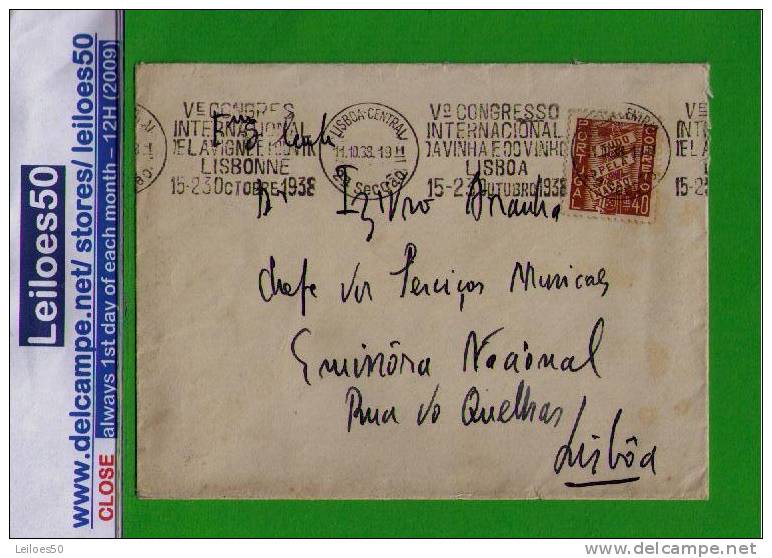 Leiloes50
www.delcampe.net/ stores/ leiloes50
CLOSE always 1st day of each month – 12H (2009)
Vᴱ CONGRES
INTERNATIONAL
DE LA VIGNE ET DU VIN
LISBONNE
15-23 OCTOBRE 1938
LISBOA-CENTRAL
11.10.38.-19 H
2ª Secção
Vº CONGRESSO
INTERNACIONAL
DA VINHA E DO VINHO
LISBOA
15-23 OUTUBRO 1938
PORTUGAL
CORREIO
TUDO
PELA
40
Chefe dos Serviços Musicaes
Emissôra Nacional
Rua do Quelhas
Lisbôa
Leiloes50
www.delcampe.net